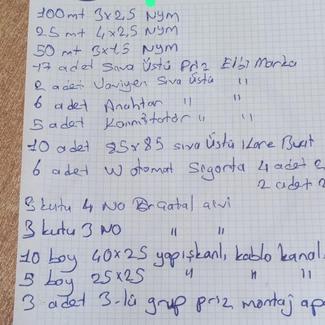 100 mt 3x2,5 Nym
25 mt 4x2,5 Nym
50 mt 3x1,5 Nym
17 adet Sıva Üstü Priz Elbi Marka
2 adet Vaviyen Sıva Üstü "
6 adet Anahtar " "
5 adet Komitatör " "
10 adet 85x85 sıva Üstü Kare Buat
6 adet W otomat Sigorta 4 adet
2 adet
3 kutu 4 NO çivi
3 kutu 3 NO " "
10 boy 40x25 yapışkanlı kablo kanal
5 boy 25x25 " " "
3 adet 3-lü grup priz montaj